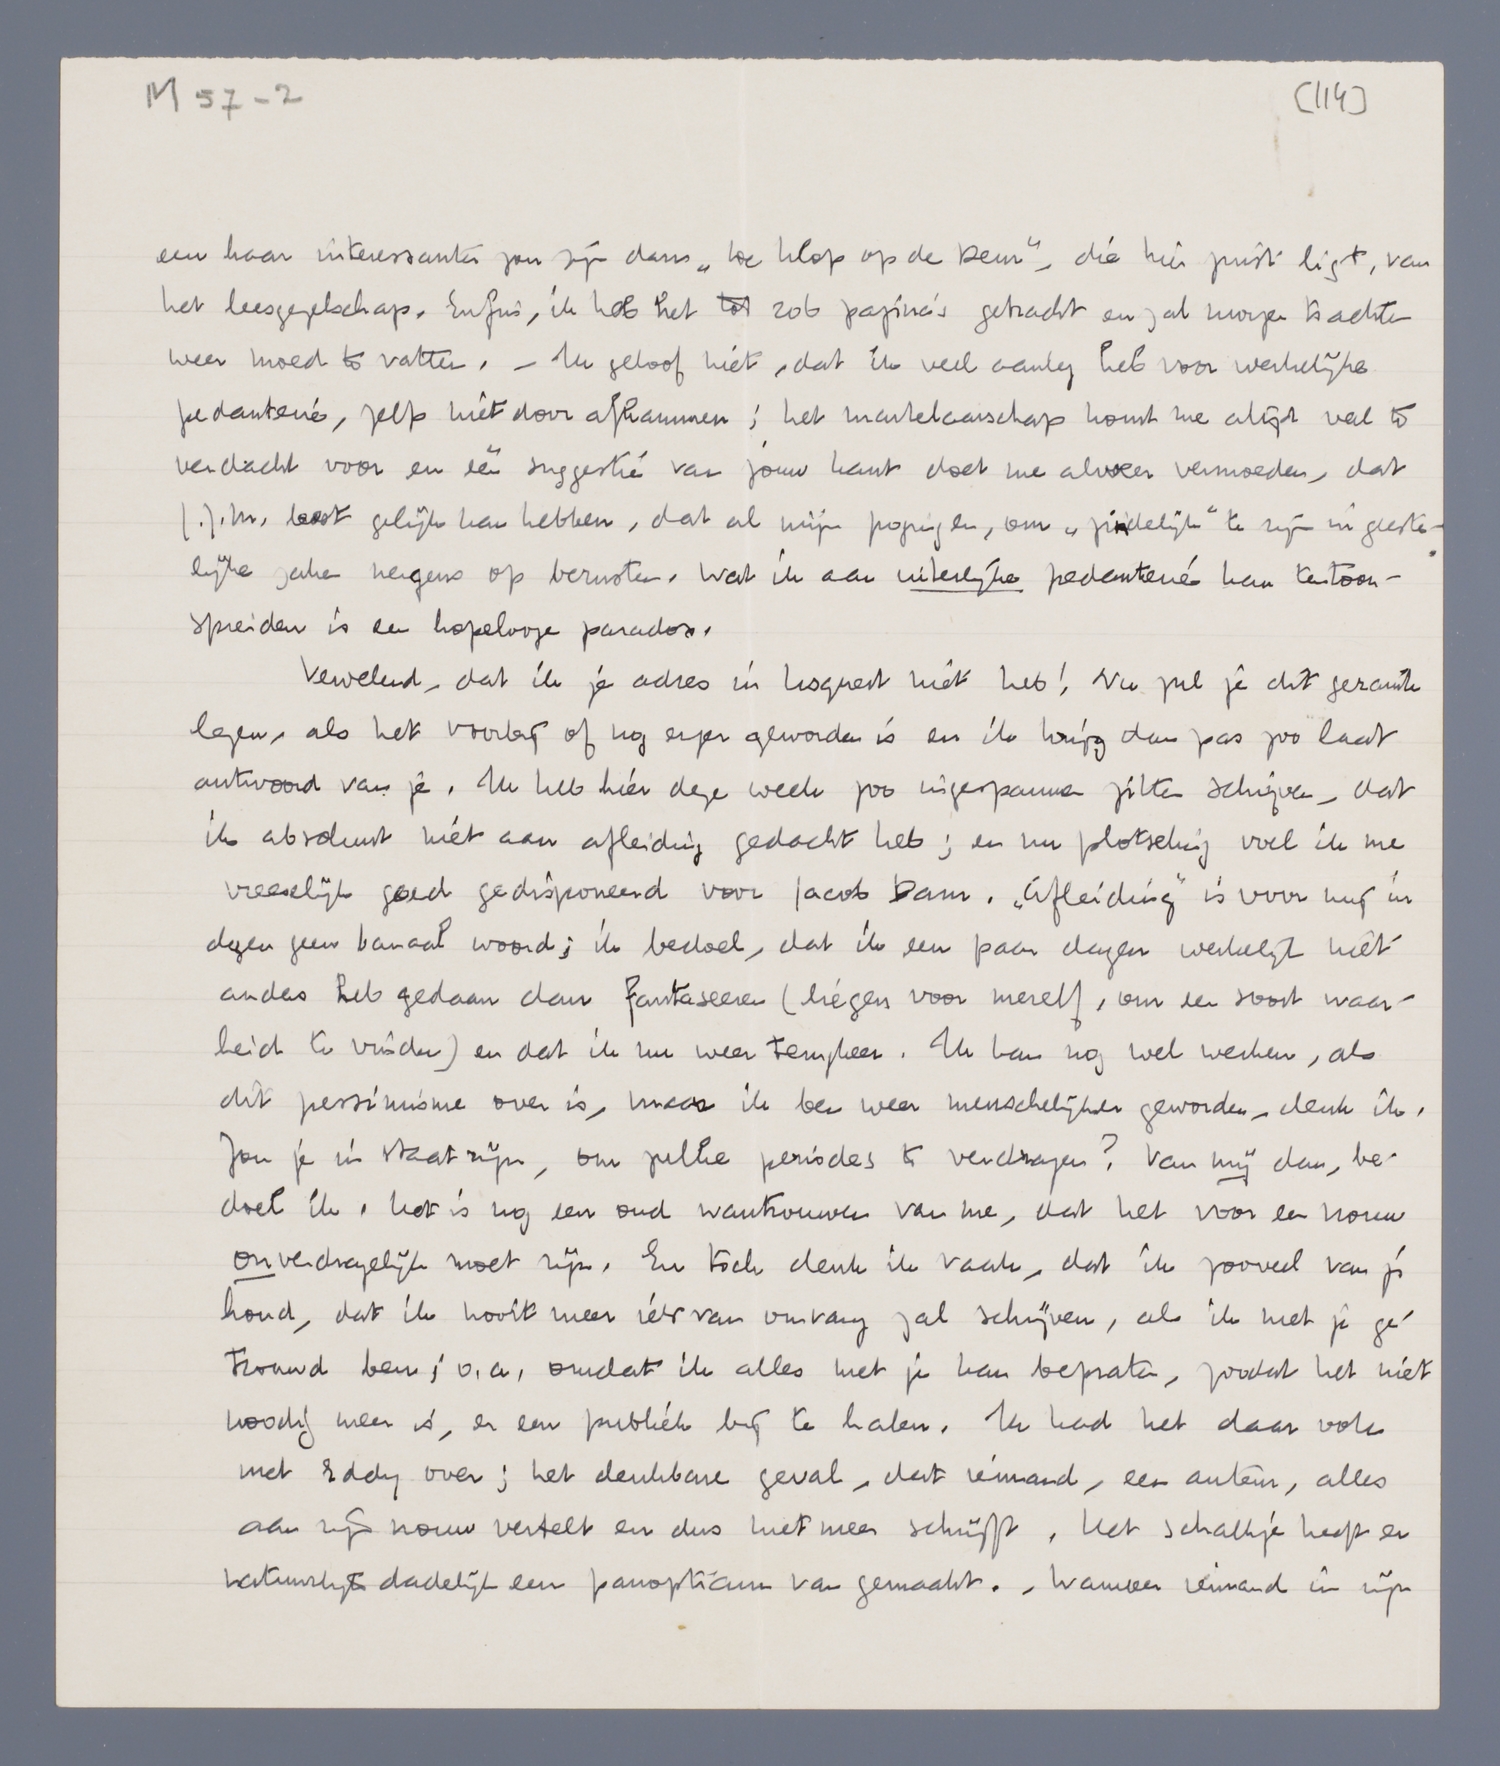 M 57-2
[114]
een haar interessanter zou zijn dan „De klop op de deur", die hier juist ligt, van
het leesgezelschap. Enfin, ik heb het tot 206 pagina's gebracht en zal morgen trachten
weer moed te vatten. – Ik geloof niet, dat ik veel aanleg heb voor werkelijke
pedanterie, zelfs niet door afkammen; het martelaarschap komt me altijd veel te
verdacht voor en één suggestie van jouw kant doet me alweer vermoeden, dat
J.J.M. best gelijk kan hebben, dat al mijn pogingen, om „zindelijk" te zijn in geeste-
lijke zaken nergens op berusten. Wat ik aan uiterlijke pedanterie kan tentoon-
spreiden is een hopelooze paradox.
Vervelend, dat ik je adres in niet heb! Nu zul je dit gezanik
lezen, als het voorbij of nog erger geworden is en ik krijg dan pas zoo laat
antwoord van je. Ik heb hier deze week zoo ingespannen zitten schrijven, dat
ik absoluut niet aan afleiding gedacht heb; en nu plotseling voel ik me
vreeselijk goed gedisponeerd voor Jacob Dam. „Afleiding" is voor mij in
dezen geen banaal woord; ik bedoel, dat ik een paar dagen werkelijk niet
anders heb gedaan dan fantaseeren (liegen voor mezelf, om een soort waar-
heid te vinden) en dat ik nu weer rempleer. Ik kan nog wel werken, als
dit pessimisme over is, maar ik ben weer menschelijker geworden, denk ik.
Zou je in staat zijn, om zulke periodes te verdragen? Van mij dan, be-
doel ik. Het is nog een oud wantrouwen van me, dat het voor een vrouw
onverdragelijk moet zijn. En toch denk ik vaak, dat ik zooveel van je
houd, dat ik nooit meer iets van omvang zal schrijven, als ik met je ge-
trouwd ben; o.a. omdat ik alles met je kan bepraten, zoodat het niet
noodig meer is, er een publiek bij te halen. Ik had het daar ook
met Eddy over; het denkbare geval, dat iemand, een auteur, alles
aan zijn vrouw vertelt en dus niet meer schrijft. Het schalkje heeft er
natuurlijk dadelijk een panopticum van gemaakt. , Wanneer iemand in zijn